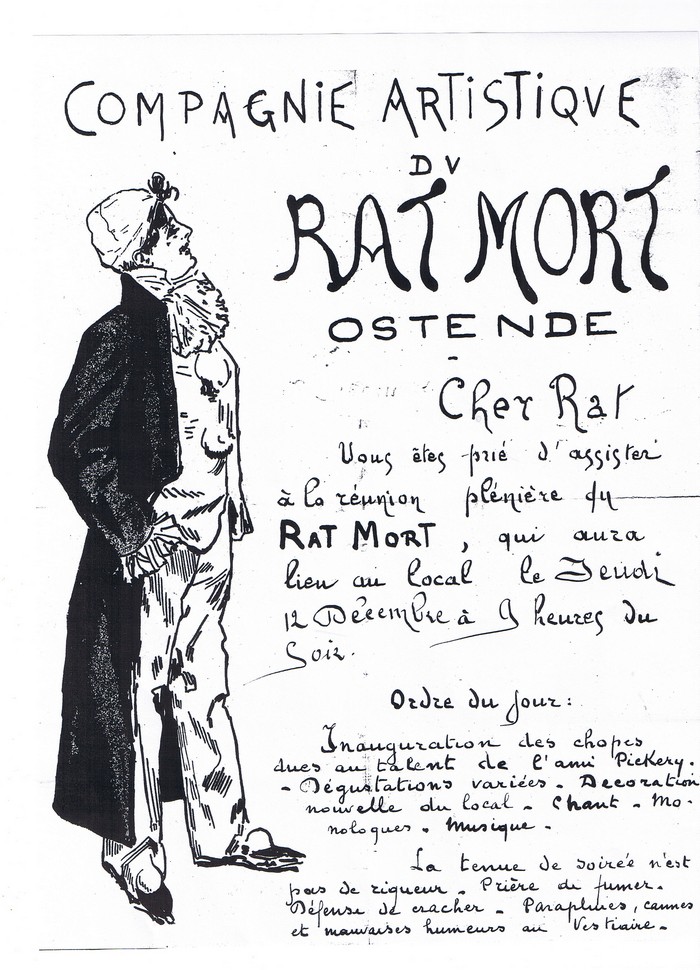 COMPAGNIE ARTISTIQVE
DV
RAT MORT
OSTENDE
-
Cher Rat
Vous êtes prié d'assister
à la réunion plénière du
RAT MORT, qui aura
lieu au local le Jeudi
12 Décembre à 9 heures du
Soir.
Ordre du jour:
Inauguration des chopes
dues au talent de l'ami Pickery.
- Dégustations variées - Decoration
nouvelle du local - Chant - Mo-
nologues - Musique -
La tenue de soirée n'est
pas de rigueur - Prière de fumer -
Défense de cracher - Parapluies, cannes
et mauvaises humeurs au Vestiaire -